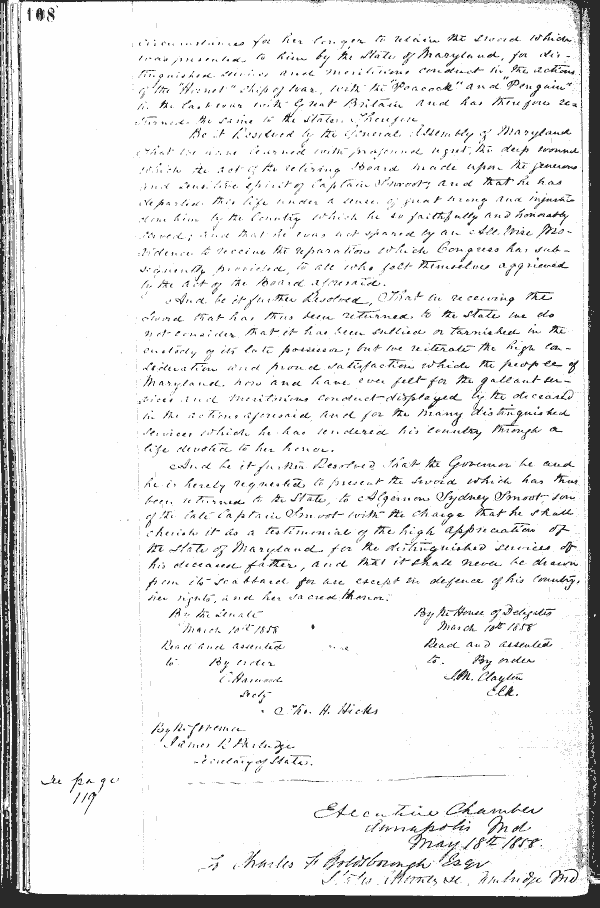 108
circumstances for her longer to retain the Sword which
was presented to him by the State of Maryland, for dis-
tinguished services and meritorious conduct in the actions
of the "Hornet" Ship of war, with the "Peacock" and "Penguin"
in the last war with Great Britain and has therefore re-
turned the same to the State. Therefore
Be it Resolved by the General Assembly of Maryland
that we have learned with profound regret, the deep wound
which the act of the retiring Board made upon the generous
and sensitive spirit of Captain Smoot, and that he has
departed this life under a sense of great wrong and injustice
done him by the Country which he so faithfully and honorably
served; and that he was not spared by an All Wise Pro-
vidence to receive the reparation which Congress has sub-
sequently provided, to all who felt themselves aggrieved
by the act of the Board aforesaid.
And be it further Resolved, That in receiving the
Sword that has thus been returned to the State we do
not consider that it has been sullied or tarnished in the
custody of its late possessor; but we reiterate the high con-
sideration and proud satisfaction which the people of
Maryland now and have ever felt for the gallant ser-
vices and meritorious conduct displayed by the deceased
in the actions aforesaid and for the many distinguished
services which he has rendered his country through a
life devoted to her honor.
And be it further Resolved That the Governor be and
he is hereby requested to present the Sword which has thus
been returned to the State, to Algernon Sydney Smoot, son
of the late Captain Smoot with the charge that he shall
cherish it as a testimonial of the high appreciation of
the State of Maryland for the distinguished services of
his deceased father, and that it shall never be drawn
from its scabbard for use except in defence of his country,
her rights, and her sacred honor.
By the Senate
March 10th 1858
Read and assented
to By order
C Harwood
Secty
By the House of Delegates
March 10th 1858
Read and assented
to. By order
J.M. Clayton
Clk.
Tho. H. Hicks
By the Governor
James R Partridge
Secretary of State.
See page
119
Executive Chamber
Annapolis Md
May 18th 1858.
To Charles F Goldsborough Esqr
Md